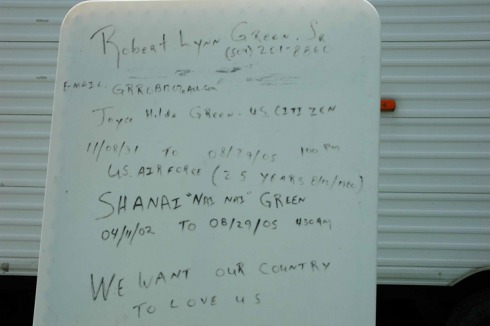 Robert Lynn Green, Sr
(504) 261-8860
E-MAIL:
Joyce Hilda Green. US. CITIZEN
11/08/31 TO 08/29/05 PM
US AIR FORCE (25 YEARS
SHANAI "NAI NAI" GREEN
04/11/02 TO 08/29/05 430AM
WE WANT OUR COUNTRY
TO LOVE US